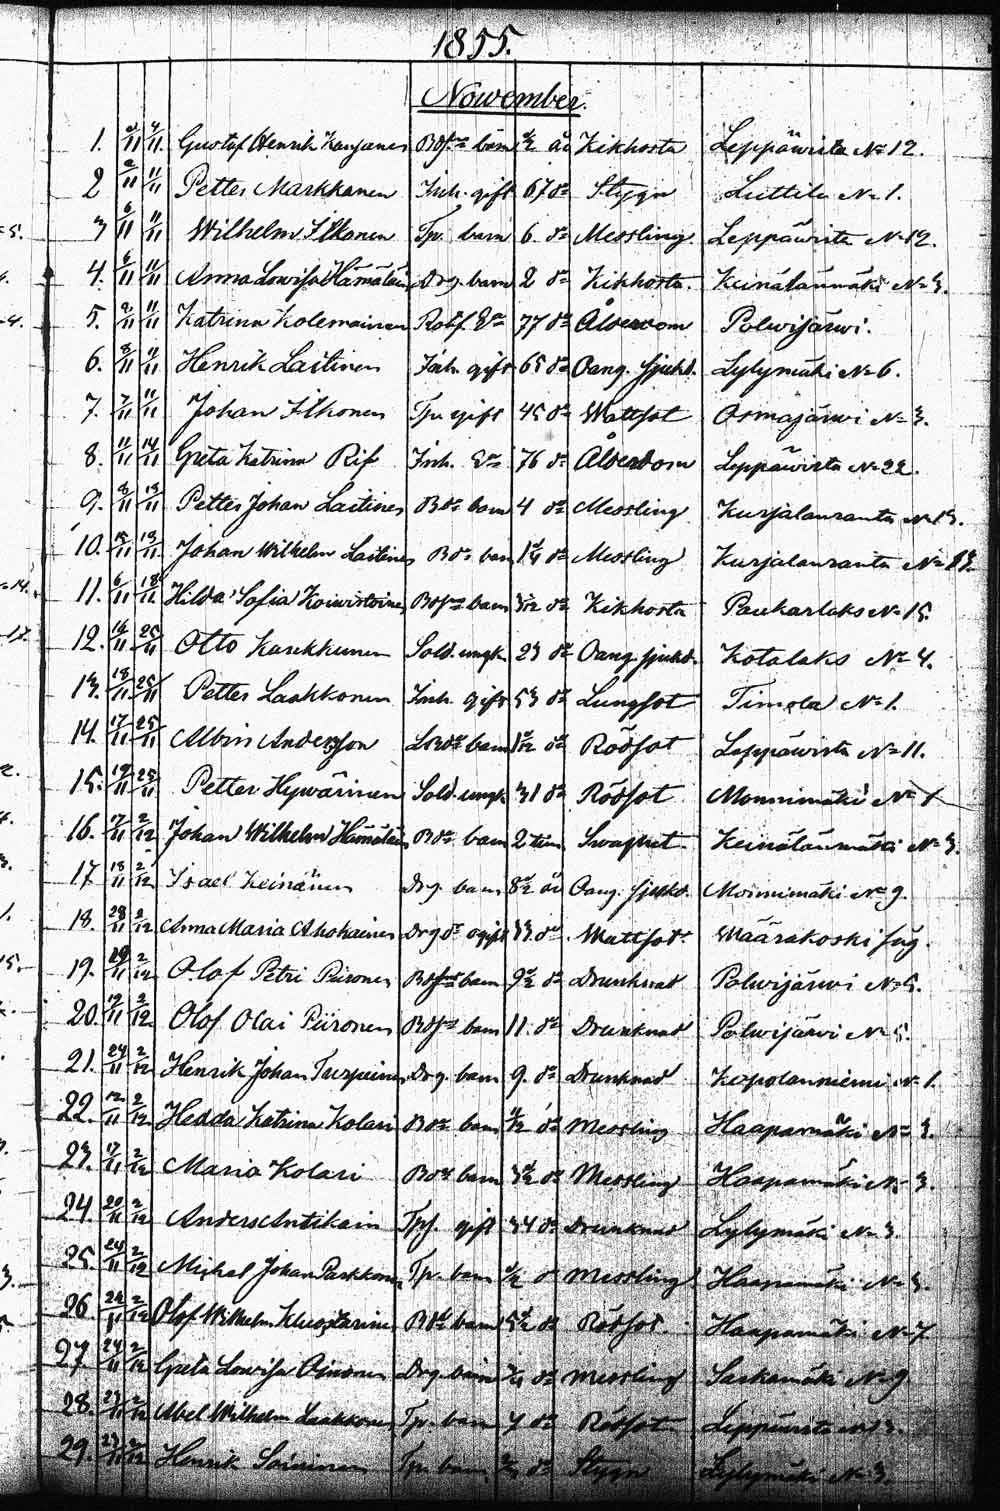 1855.
November.
1. 2/11 4/11 Gustaf Henrik Bdsn barn 1/2 år Kikhosta Leppäwirta No 12.
2 2/11 11/11 Petter Markkanen Inh. gift 67 do Stygn Luttila No 1.
3 6/11 11/11 Wilhelm Ilkonen Tp. barn 6. do Messling. Leppäwirta No 12.
4. 6/11 11/11 Anna Lowisa Hämäläin Drg. barn 2 do Kikhosta. Keinälänmäki No 3.
5. 9/11 11/11 Katrina Kolemainen 77 do Ålderdom Polwijärwi.
6. 8/11 11/11 Henrik Laitinen Inh. gift 65 do Oang. sjukd. Lylymäki No 6.
7. 7/11 11/11 Johan Ilkonen Tpr gift 45 do Wattsot Osmajärwi No 3.
8. 11/11 14/11 Greta Katrina Rif Inh. Ea 76 do Ålderdom Leppäwirta No 22.
9. 8/11 18/11 Petter Johan Laitinen Bdn barn 4 do Messling Kurjalanranta No 13.
10. 15/11 18/11 Johan Wilhelm Laitinen Bdn barn 1 1/4 do Messling Kurjalanranta No 13.
11. 6/11 18/11 Hilda Sofia Koiwistoinen Bdsn barn do Kikhosta Paukarlaks No 15.
12. 16/11 25/11 Otto Karkkunen Sold. ungk. 23 do Oang sjukd. Kotalaks No 4.
13. 18/11 25/11 Petter Laakkonen Inh. gift 53 do Lungsot Timola No 1.
14. 17/11 25/11 Albin Andersson barn do Rödsot Leppäwirta No 11.
15. 19/11 25/11 Petter Hywärinen Sold. ungk 31 do Rödsot Monnimäki No 1
16. 17/11 2/12 Johan Wilhelm Hämäläin Bdn barn 2 tim Swaghet Keinälänmäki No 3.
17 18/11 2/12 Isael Keinänen Drg. barn 8 1/2 år Oang. sjukd. Monnimäki No 9.
18. 28/11 2/12 Anna Maria Ahokainen Drg dr ogift 33 do Wattsot. Määräkoski såg.
19. 19/11 2/12 Olof Petri Piironen Bdsn barn 9 1/2 do Drunknad Polwijärwi No 5.
20. 19/11 2/12 Olof Olai Piironen Bdsn barn 11. do Drunknad Polwijärwi No 5.
21. 24/11 2/12 Henrik Johan Turpeinen Drg. barn 9. do Drunknad Kopolanniemi No 1.
22. 12/11 2/12 Hedda Katrina Kolari Bdn barn 1/2 do Messling Haapamäki No 3.
23. 17/11 2/12 Maria Kolari Bdn barn 3 1/2 do Messling Haapamäki No 3.
24. 20/11 2/12 Anders Antikain gift 34 do Drunknad Lylymäki No 3.
25. 24/11 2/12 Michel Johan Parkkonen Tp. barn 1/2 do Messling Haapamäki No 3.
26 24/11 2/12 Olof Wilhelm barn 5 1/2 do Rödsot. Haapamäki No 7
27. 24/11 2/12 Greta Lowisa Drg. barn do Messling Saskamäki No 9
28. 23/11 2/12 Abel Wilhelm Laakkonen Tp. barn 7 do Rödsot Leppäwirta No 13.
29. 23/11 2/12 Henrik Soininen Tpr barn do Stygn Lylymäki No 3.